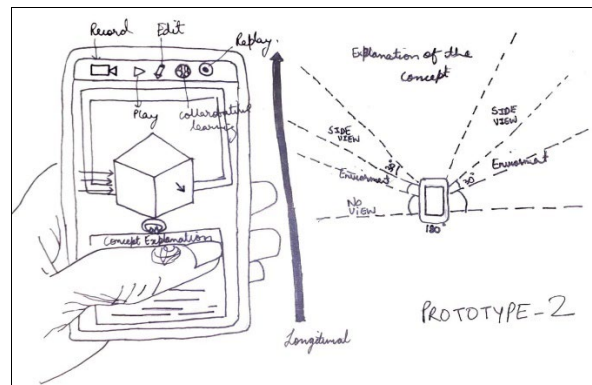 Record
Edit
Replay.
Play
collaborative
learning
Concept Explanation
Longitinal
Explanation of the
concept
SIDE
VIEW
SIDE
VIEW
Enviorment
Enviorment
30°
NO
VIEW
180°
PROTOTYPE-2